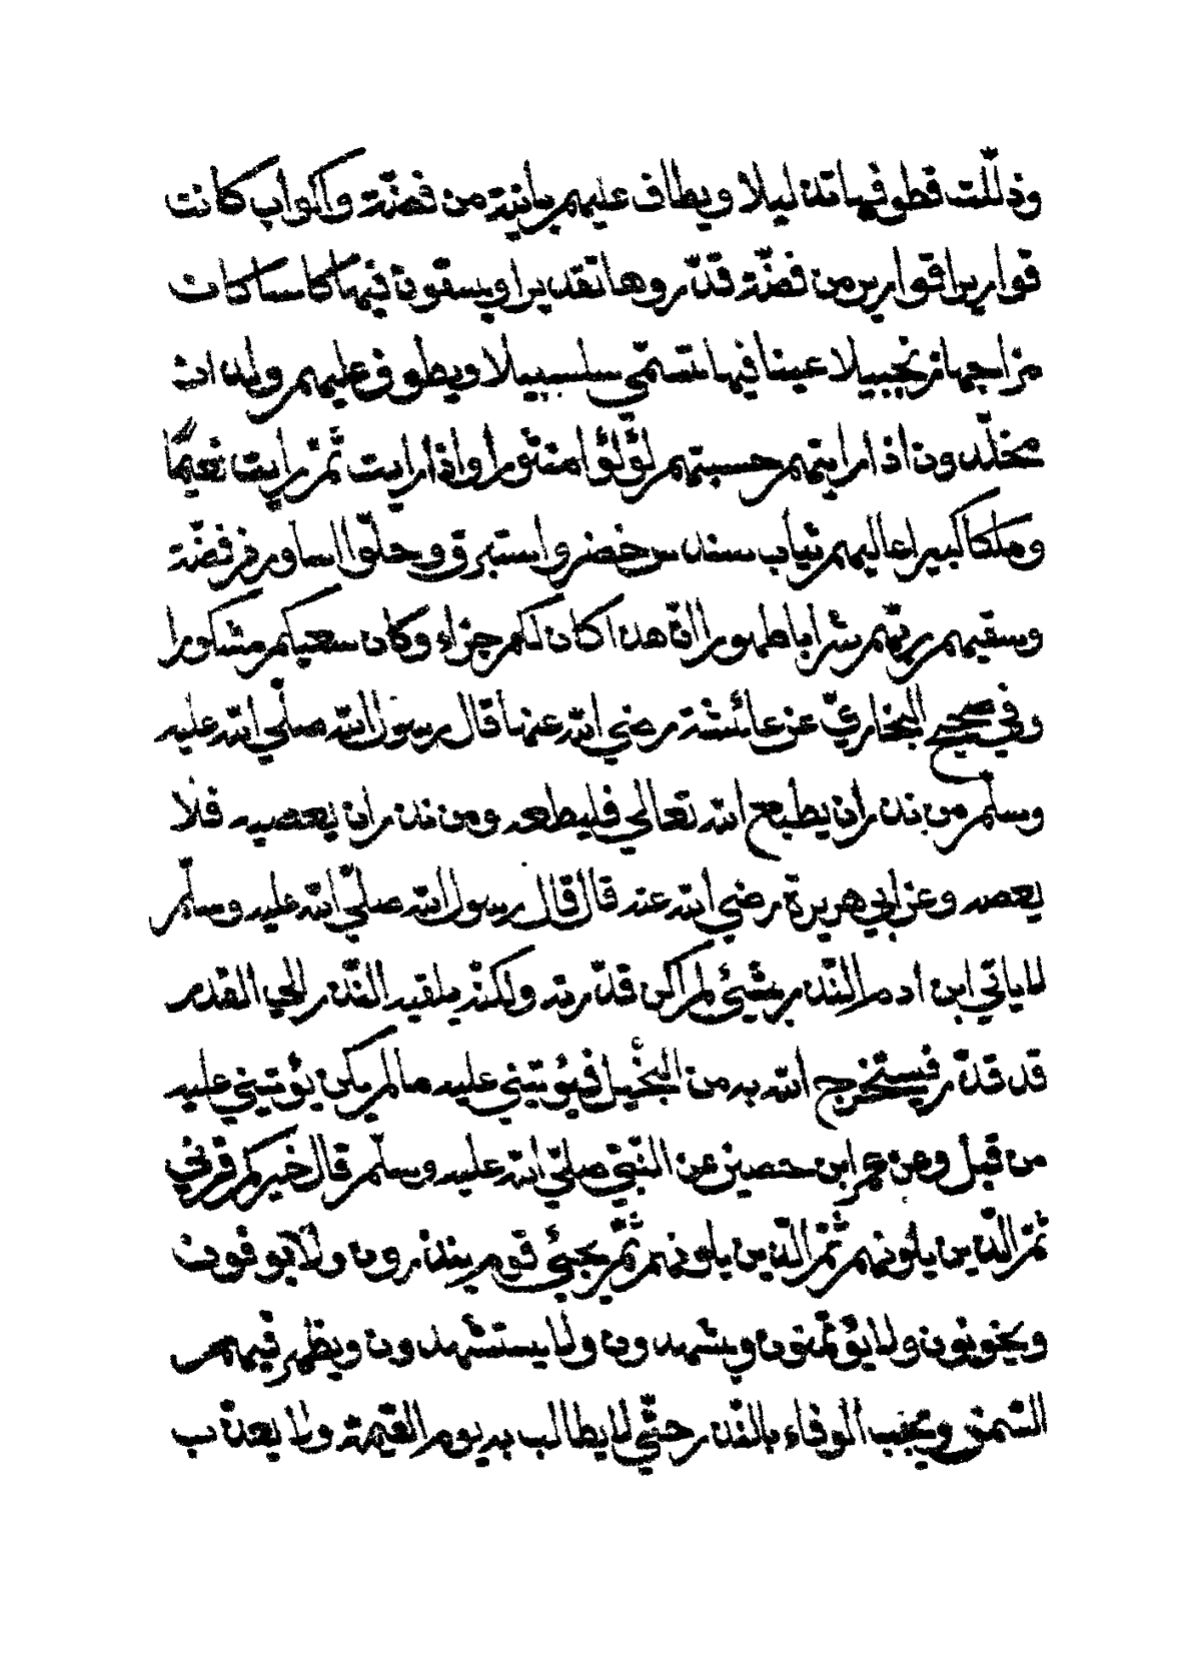 وذلّلت قطوفها تذليلا ويطاف عليهم بأنية من فضّة وأكواب كانت
قواريرا قوارير من فضّة قدّروها تقديرا ويسقون فيها كاسا كان
مزاجها زنجبيلا عينا فيها تسمّى سلسبيلا ويطوف عليهم ولدان
مخلّدون اذا رايتهم حسبتهم لؤلؤا منثورا وإذا رايت ثمّ رايت نعيمًا
وملكا كبيرا عاليهم ثياب سندس خضر واستبرق وحلّوا اساور من فضّة
وسقيهم ربّهم شرابا طهورا انّ هذا كان لكم جزاء وكان سعيكم مشكورا
وفي صحيح البخاريّ عن عائشة رضي الله عنها قال رسول الله صلّى الله عليه
وسلّم من نذر ان يطيع الله تعالى فليطعه ومن نذر ان يعصيه فلا
يعصه وعن ابي هريرة رضي الله عنه قال قال رسول الله صلّى الله عليه وسلّم
لا ياتي ابن ادم النّذر بشيئ لم اكن قدّرته ولكن يلقيه النّذر الى القدر
قد قدّر فيستخرج الله به من البخيل فيؤتيني عليه ما لم يكن يؤتيني عليه
من قبل وعن عمرابن حصين عن النّبيّ صلّى الله عليه وسلّم قال خيركم قرني
ثمّ الّذين يلونهم ثمّ الّذين يلونهم ثمّ يجيئ قوم ينذرون ولا يوفون
ويخونون ولا يؤتمنون ويشهدون ولا يستشهدون ويظهر فيهم
السّمن ويجب الوفاء بالنّذر حتّى لا يطالب به يوم القيمة ولا يعذب